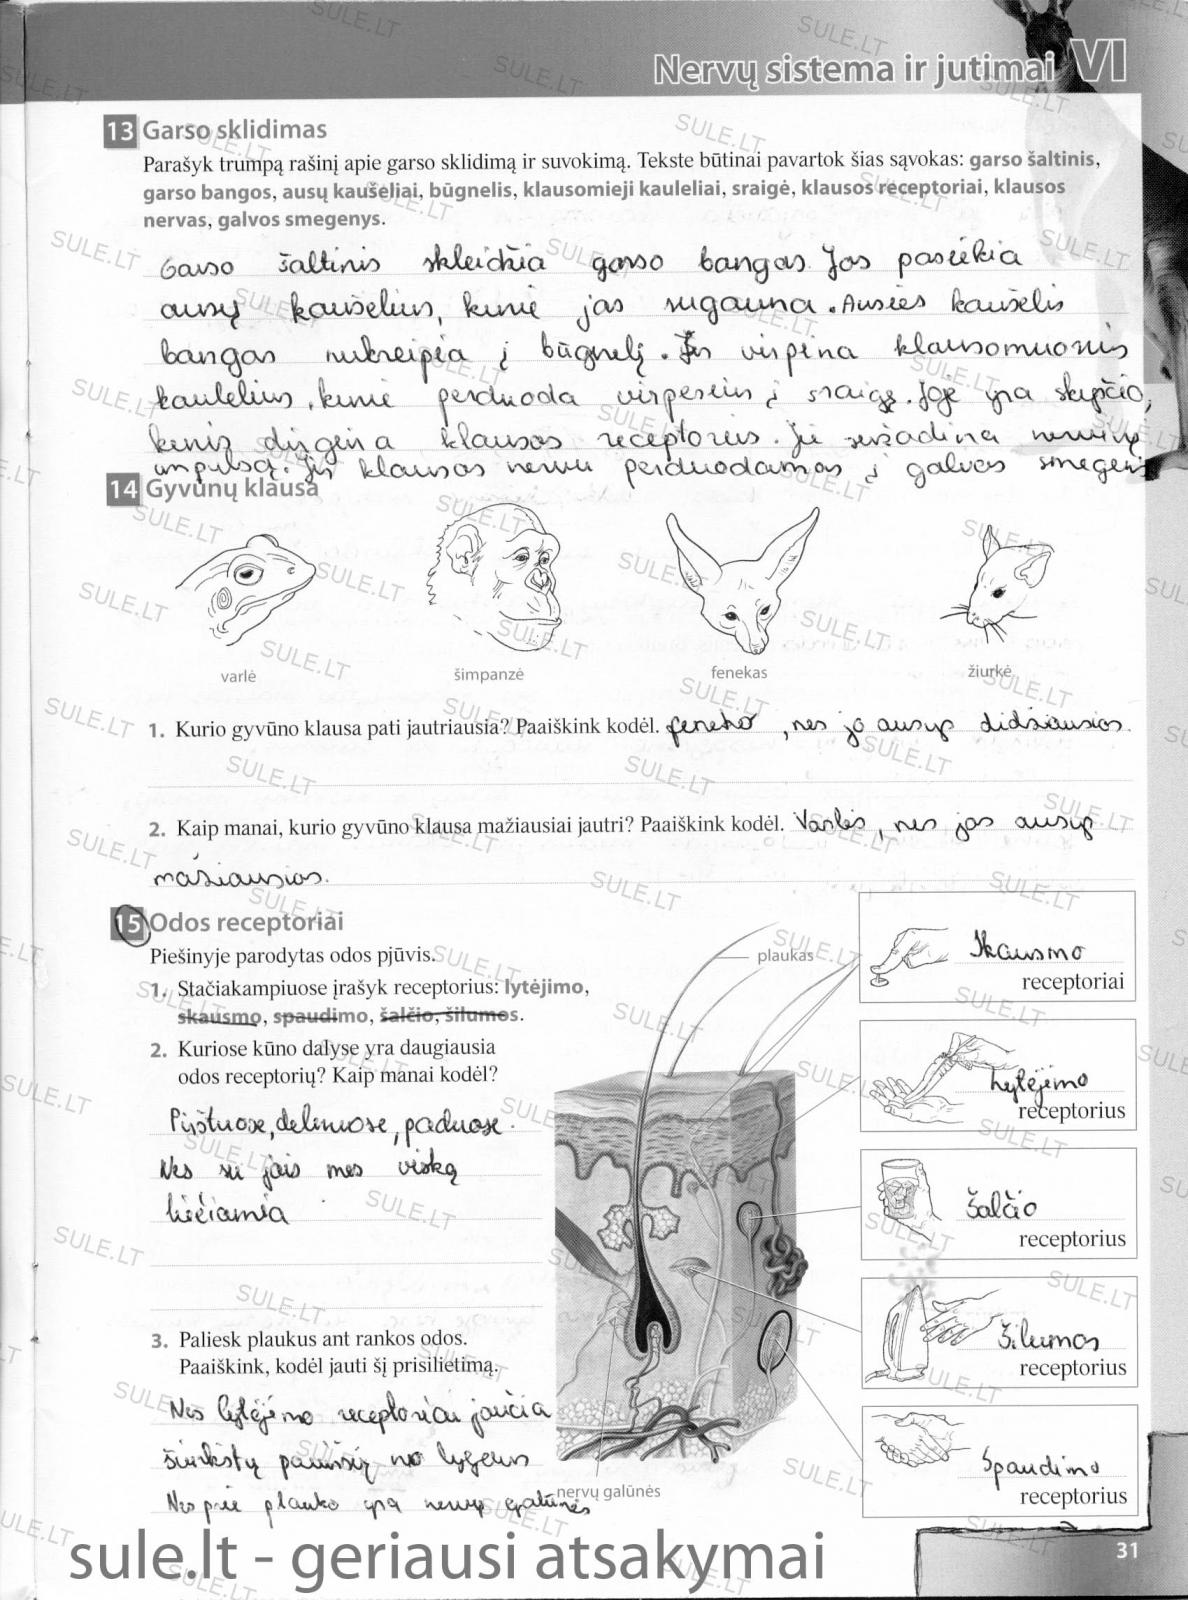 Nervų sistema ir jutimai VI
13 Garso sklidimas
Parašyk trumpą rašinį apie garso sklidimą ir suvokimą. Tekste būtinai pavartok šias sąvokas: garso šaltinis,
garso bangos, ausų kaušeliai, būgnelis, klausomieji kauleliai, sraigė, klausos receptoriai, klausos
nervas, galvos smegenys.
Garso šaltinis skleidžia garso bangas. Jos pasiekia
ausų kaušelius, kurie jas sugauna. Ausies kaušelis
bangas nukreipia į būgnelį. Jis virpina klausomuosius
kaulelius, kurie perduoda virpesius į sraigę. Joje yra skysčio,
kuris dirgina klausos receptorius. Jie sužadina nervinį
impulsą. Jis klausos nervu perduodamas į galvos smegenis
14 Gyvūnų klausa
varlė šimpanzė fenekas žiurkė
1. Kurio gyvūno klausa pati jautriausia? Paaiškink kodėl. feneko, nes jo ausys didžiausios.
2. Kaip manai, kurio gyvūno klausa mažiausiai jautri? Paaiškink kodėl. Varlės, nes jos ausys
mažiausios.
15 Odos receptoriai
Piešinyje parodytas odos pjūvis.
1. Stačiakampiuose įrašyk receptorius: lytėjimo,
skausmo, spaudimo, šalčio, šilumos.
2. Kuriose kūno dalyse yra daugiausia
odos receptorių? Kaip manai kodėl?
Pirštuose, delnuose, paduose.
Nes su jais mes viską
liečiamia
3. Paliesk plaukus ant rankos odos.
Paaiškink, kodėl jauti šį prisilietimą.
Nes lytėjimo receptoriai jaučia
šiurkštų paviršių nuo lygaus
Nes prie plauko yra nervų galūnės
plaukas
nervų galūnės
Skausmo
receptoriai
Lytėjimo
receptorius
Šalčio
receptorius
Šilumos
receptorius
Spaudimo
receptorius
31
sule.lt - geriausi atsakymai
SULE.LT